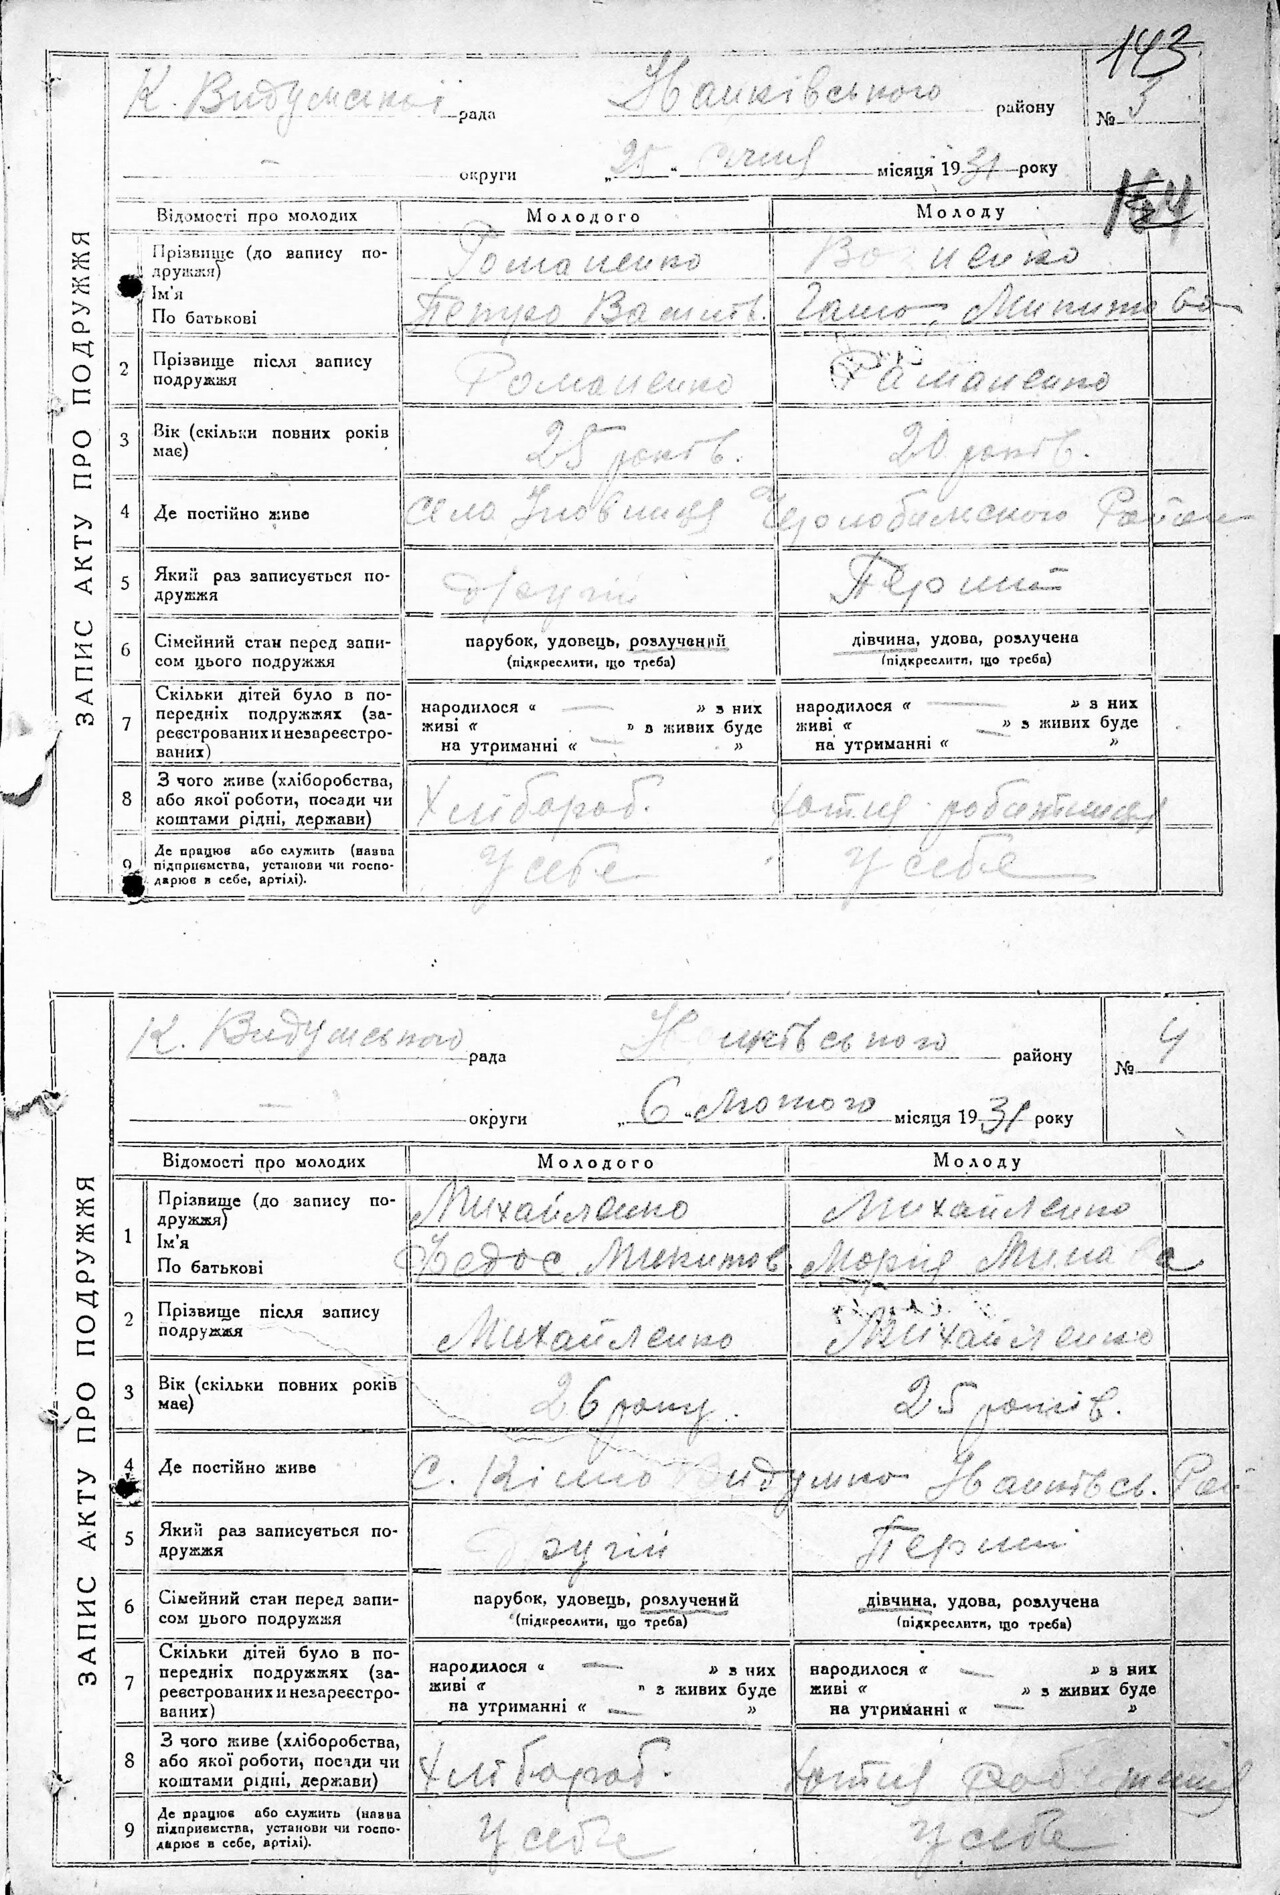 143
К. Видумської рада Іванківського району № 3
округи „25“ січня місяця 1931 року
144
ЗАПИС АКТУ ПРО ПОДРУЖЖЯ
Відомості про молодих Молодого Молоду
Прізвище (до запису по-
дружжя) Романенко
Ім'я
По батькові Петро Василів. Микитова
2 Прізвище після запису
подружжя Романенко Романенко
3 Вік (скільки повних років
має) 25 років. 20 років.
4 Де постійно живе село Чорнобильского Район
5 Який раз записується по-
дружжя другій Перший
6 Сімейний стан перед запи-
сом цього подружжя парубок, удовець, розлучений дівчина, удова, розлучена
(підкреслити, що треба) (підкреслити, що треба)
7 Скільки дітей було в по-
передніх подружжях (за-
реєстрованих и незареєстро-
ваних)
народилося « — » з них народилося « — » з них
живі « » з живих буде живі « » з живих буде
на утриманні « — » на утриманні « — »
8 З чого живе (хліборобства,
або якої роботи, посади чи
коштами рідні, держави) Хлібороб.
9 Де працює або служить (назва
підприємства, установи чи госпо-
дарює в себе, артілі). У себе У себе
К. Видумського рада Іванківського району № 4
округи „6“ лютого місяця 1931 року
ЗАПИС АКТУ ПРО ПОДРУЖЖЯ
Відомості про молодих Молодого Молоду
1 Прізвище (до запису по-
дружжя) Михайленко Михайленко
Ім'я
По батькові Федос Микитов. Мория
2 Прізвище після запису
подружжя Михайленко Михайленко
3 Вік (скільки повних років
має) 26 року. 25 років.
4 Де постійно живе С. Видумка Іванківсь. Рай
5 Який раз записується по-
дружжя Другій Перший
6 Сімейний стан перед запи-
сом цього подружжя парубок, удовець, розлучений дівчина, удова, розлучена
(підкреслити, що треба) (підкреслити, що треба)
7 Скільки дітей було в по-
передніх подружжях (за-
реєстрованих и незареєстро-
ваних)
народилося « — » з них народилося « — » з них
живі « » з живих буде живі « » з живих буде
на утриманні « — » на утриманні « — »
8 З чого живе (хліборобства,
або якої роботи, посади чи
коштами рідні, держави) Хлібороб.
9 Де працює або служить (назва
підприємства, установи чи госпо-
дарює в себе, артілі). У себе У себе